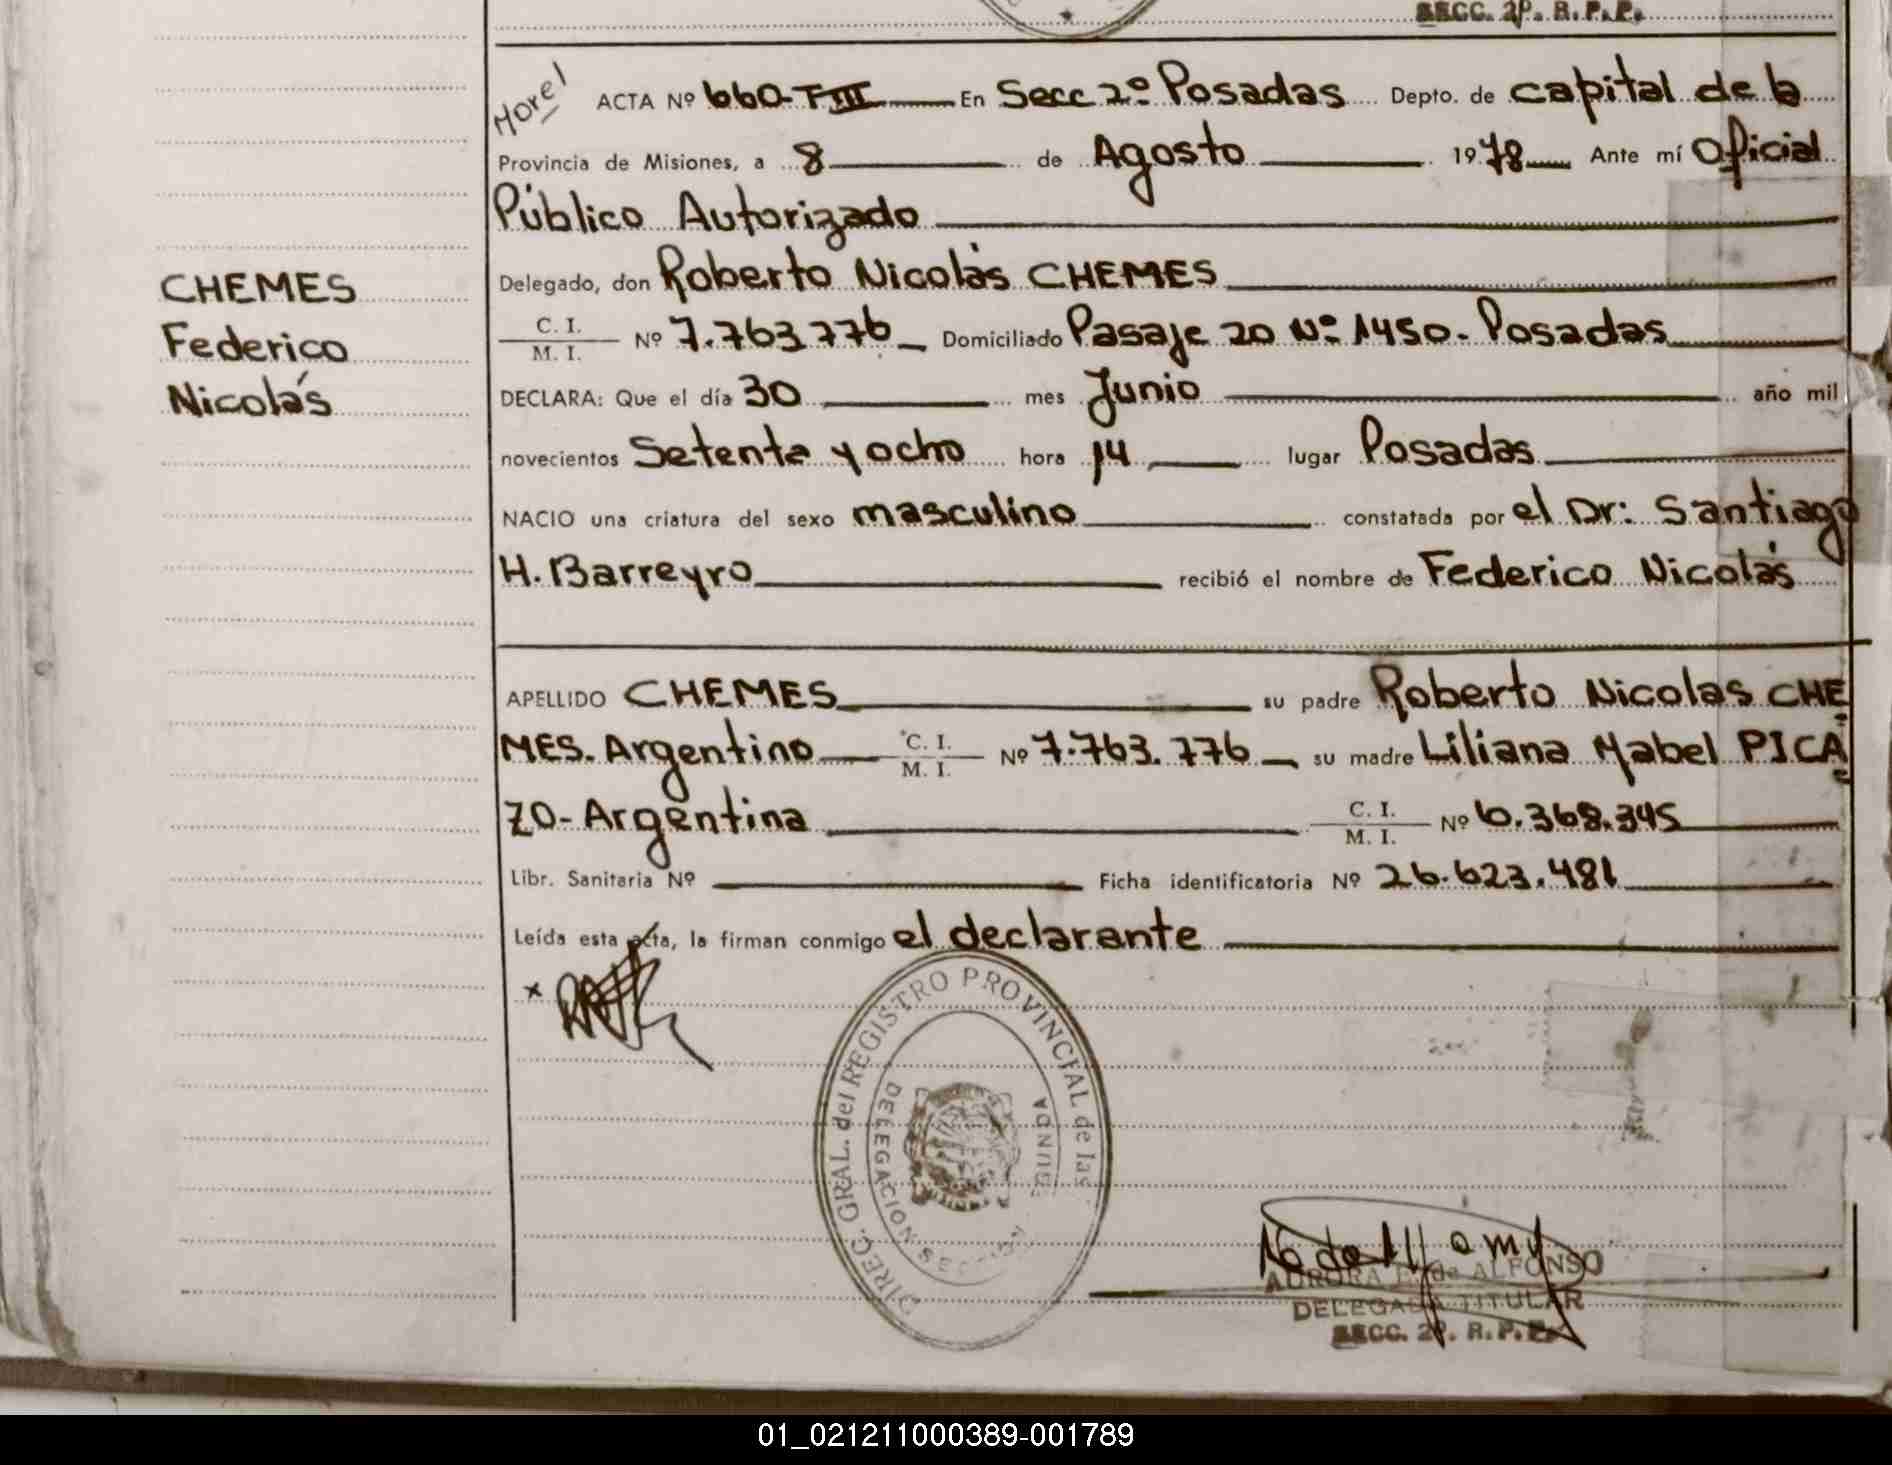 SECC. 2ª. R.P.P.
Morel
ACTA Nº 660-T-III En Secc 2º Posadas Depto. de capital de la
Provincia de Misiones, a 8 de Agosto 1978 Ante mí Oficial
Público Autorizado
Delegado, don Roberto Nicolás CHEMES
C. I.
M. I. Nº 7.763.776 Domiciliado Pasaje 20 Nº 1450- Posadas
DECLARA: Que el día 30 mes Junio año mil
novecientos Setenta y ocho hora 14 lugar Posadas
NACIO una criatura del sexo masculino constatada por el Dr: Santiago
H. Barreyro recibió el nombre de Federico Nicolás
APELLIDO CHEMES su padre Roberto Nicolas CHE
MES. Argentino C. I. M. I. Nº 7.763.776 su madre Liliana Mabel PICA
ZO- Argentina C. I. M. I. Nº 6.368.345
Libr. Sanitaria Nº Ficha identificatoria Nº 26.623.481
Leída esta acta, la firman conmigo el declarante
x
CHEMES
Federico
Nicolás
DIREC. GRAL. del REGISTRO PROVINCIAL de las
DELEGACION
AURORA de ALFONSO
DELEGADA TITULAR
SECC. 2ª. R.P.P.
01_021211000389-001789